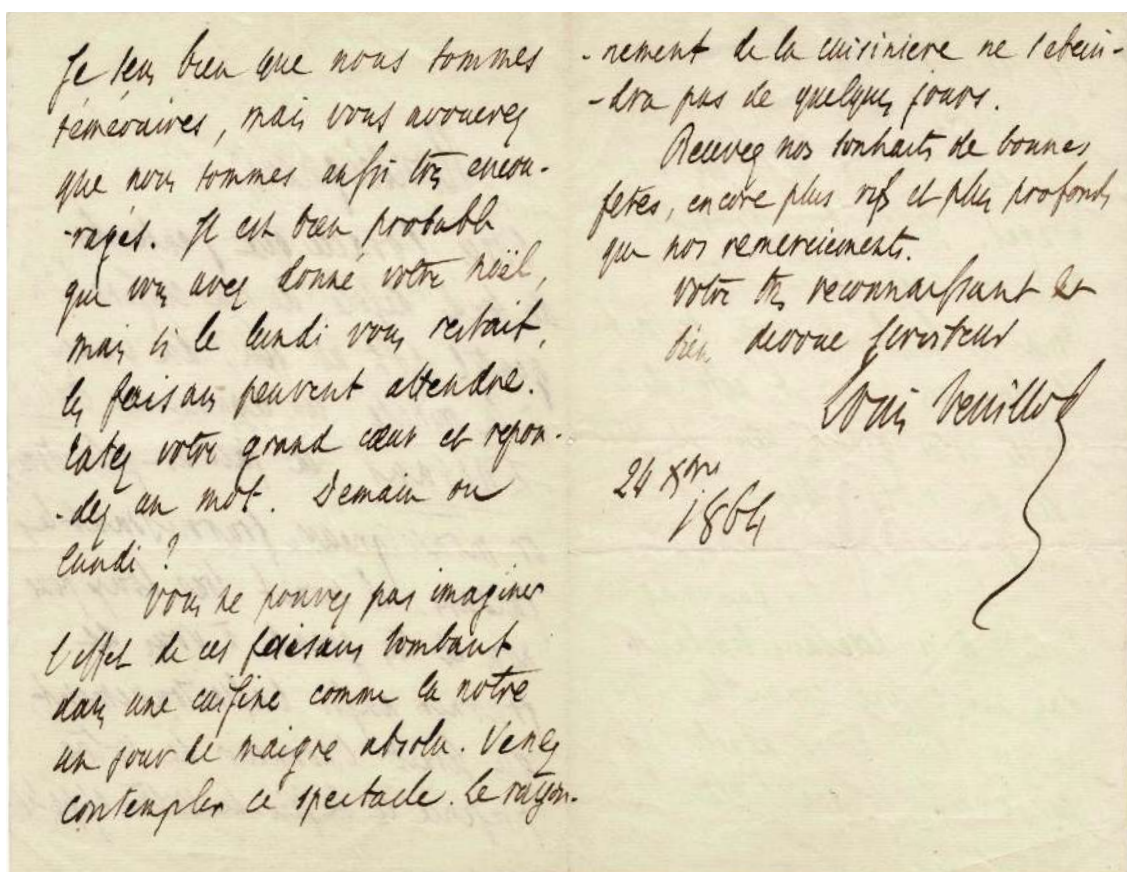 Je sens bien que nous sommes
téméraires, mais vous avouerez
que nous sommes aussi très encou-
-ragés. Il est bien probable
que vous avez donné votre Noël,
mais si le lundi vous restait,
les faisans peuvent attendre.
Tatez votre grand cœur et repon-
-dez un mot. Demain ou
lundi?
Vous ne pouvez pas imaginer
l'effet de ces faisans tombant
dans une cuisine comme la notre
un jour de maigre absolu. Venez
contempler ce spectacle. Le rayon-
-nement de la cuisiniere ne s'etein-
-dra pas de quelques jours.
Recevez nos souhaits de bonnes
fetes, encore plus vifs et plus profonds
que nos remerciements.
votre très reconnaissant et
bien devoue serviteur
Louis Veuillot
24 Xbre
1864